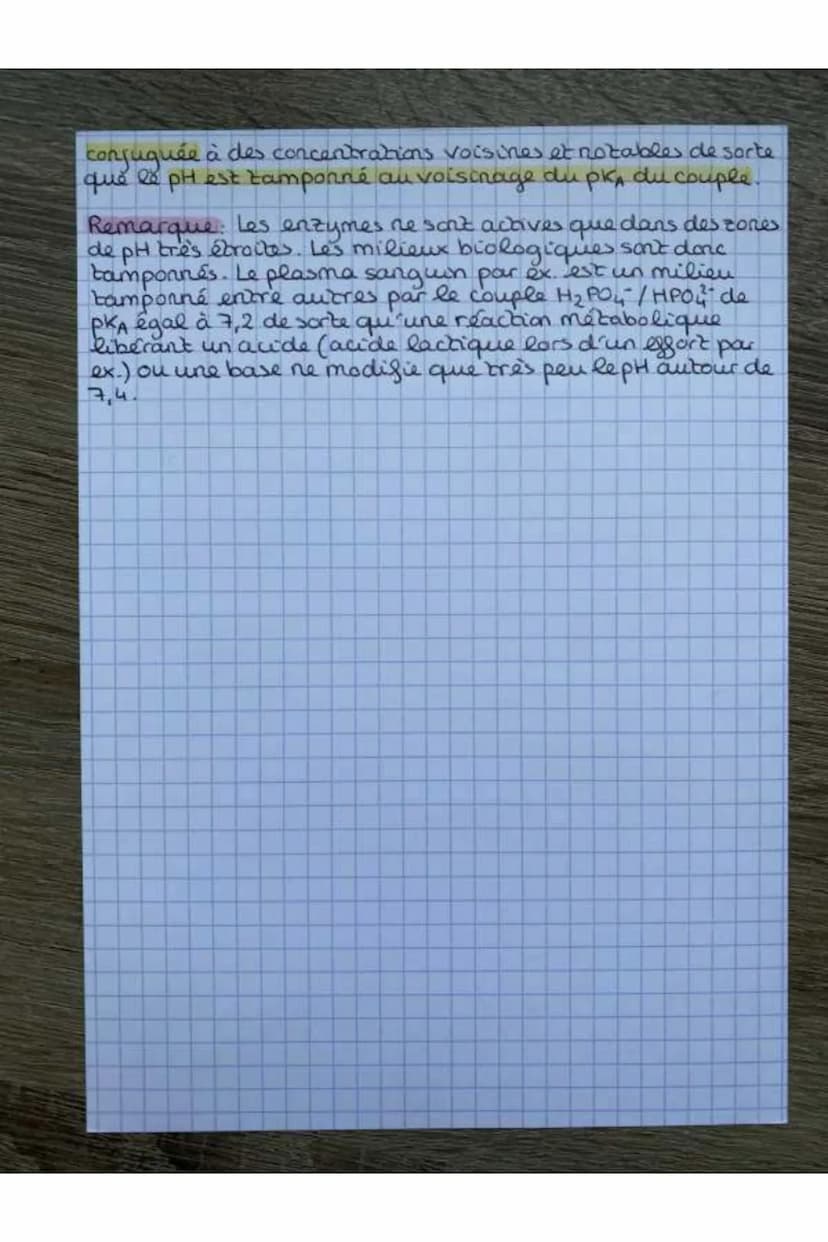 conjuguée à des concentrations voisines et notables de sorte
que le pH est tamponné au voisinage du pKA du couple.
Remarque: Les enzymes ne sont actives que dans des zones
de pH très étroites. Les milieux biologiques sont donc
tamponnés. Le plasma sanguin par ex. est un milieu
tamponné entre autres par le couple H₂PO₄⁻/HPO₄²⁻ de
pKA égal à 7,2 de sorte qu'une réaction métabolique
libérant un acide (acide lactique lors d'un effort par
ex.) ou une base ne modifie que très peu le pH autour de
7,4.